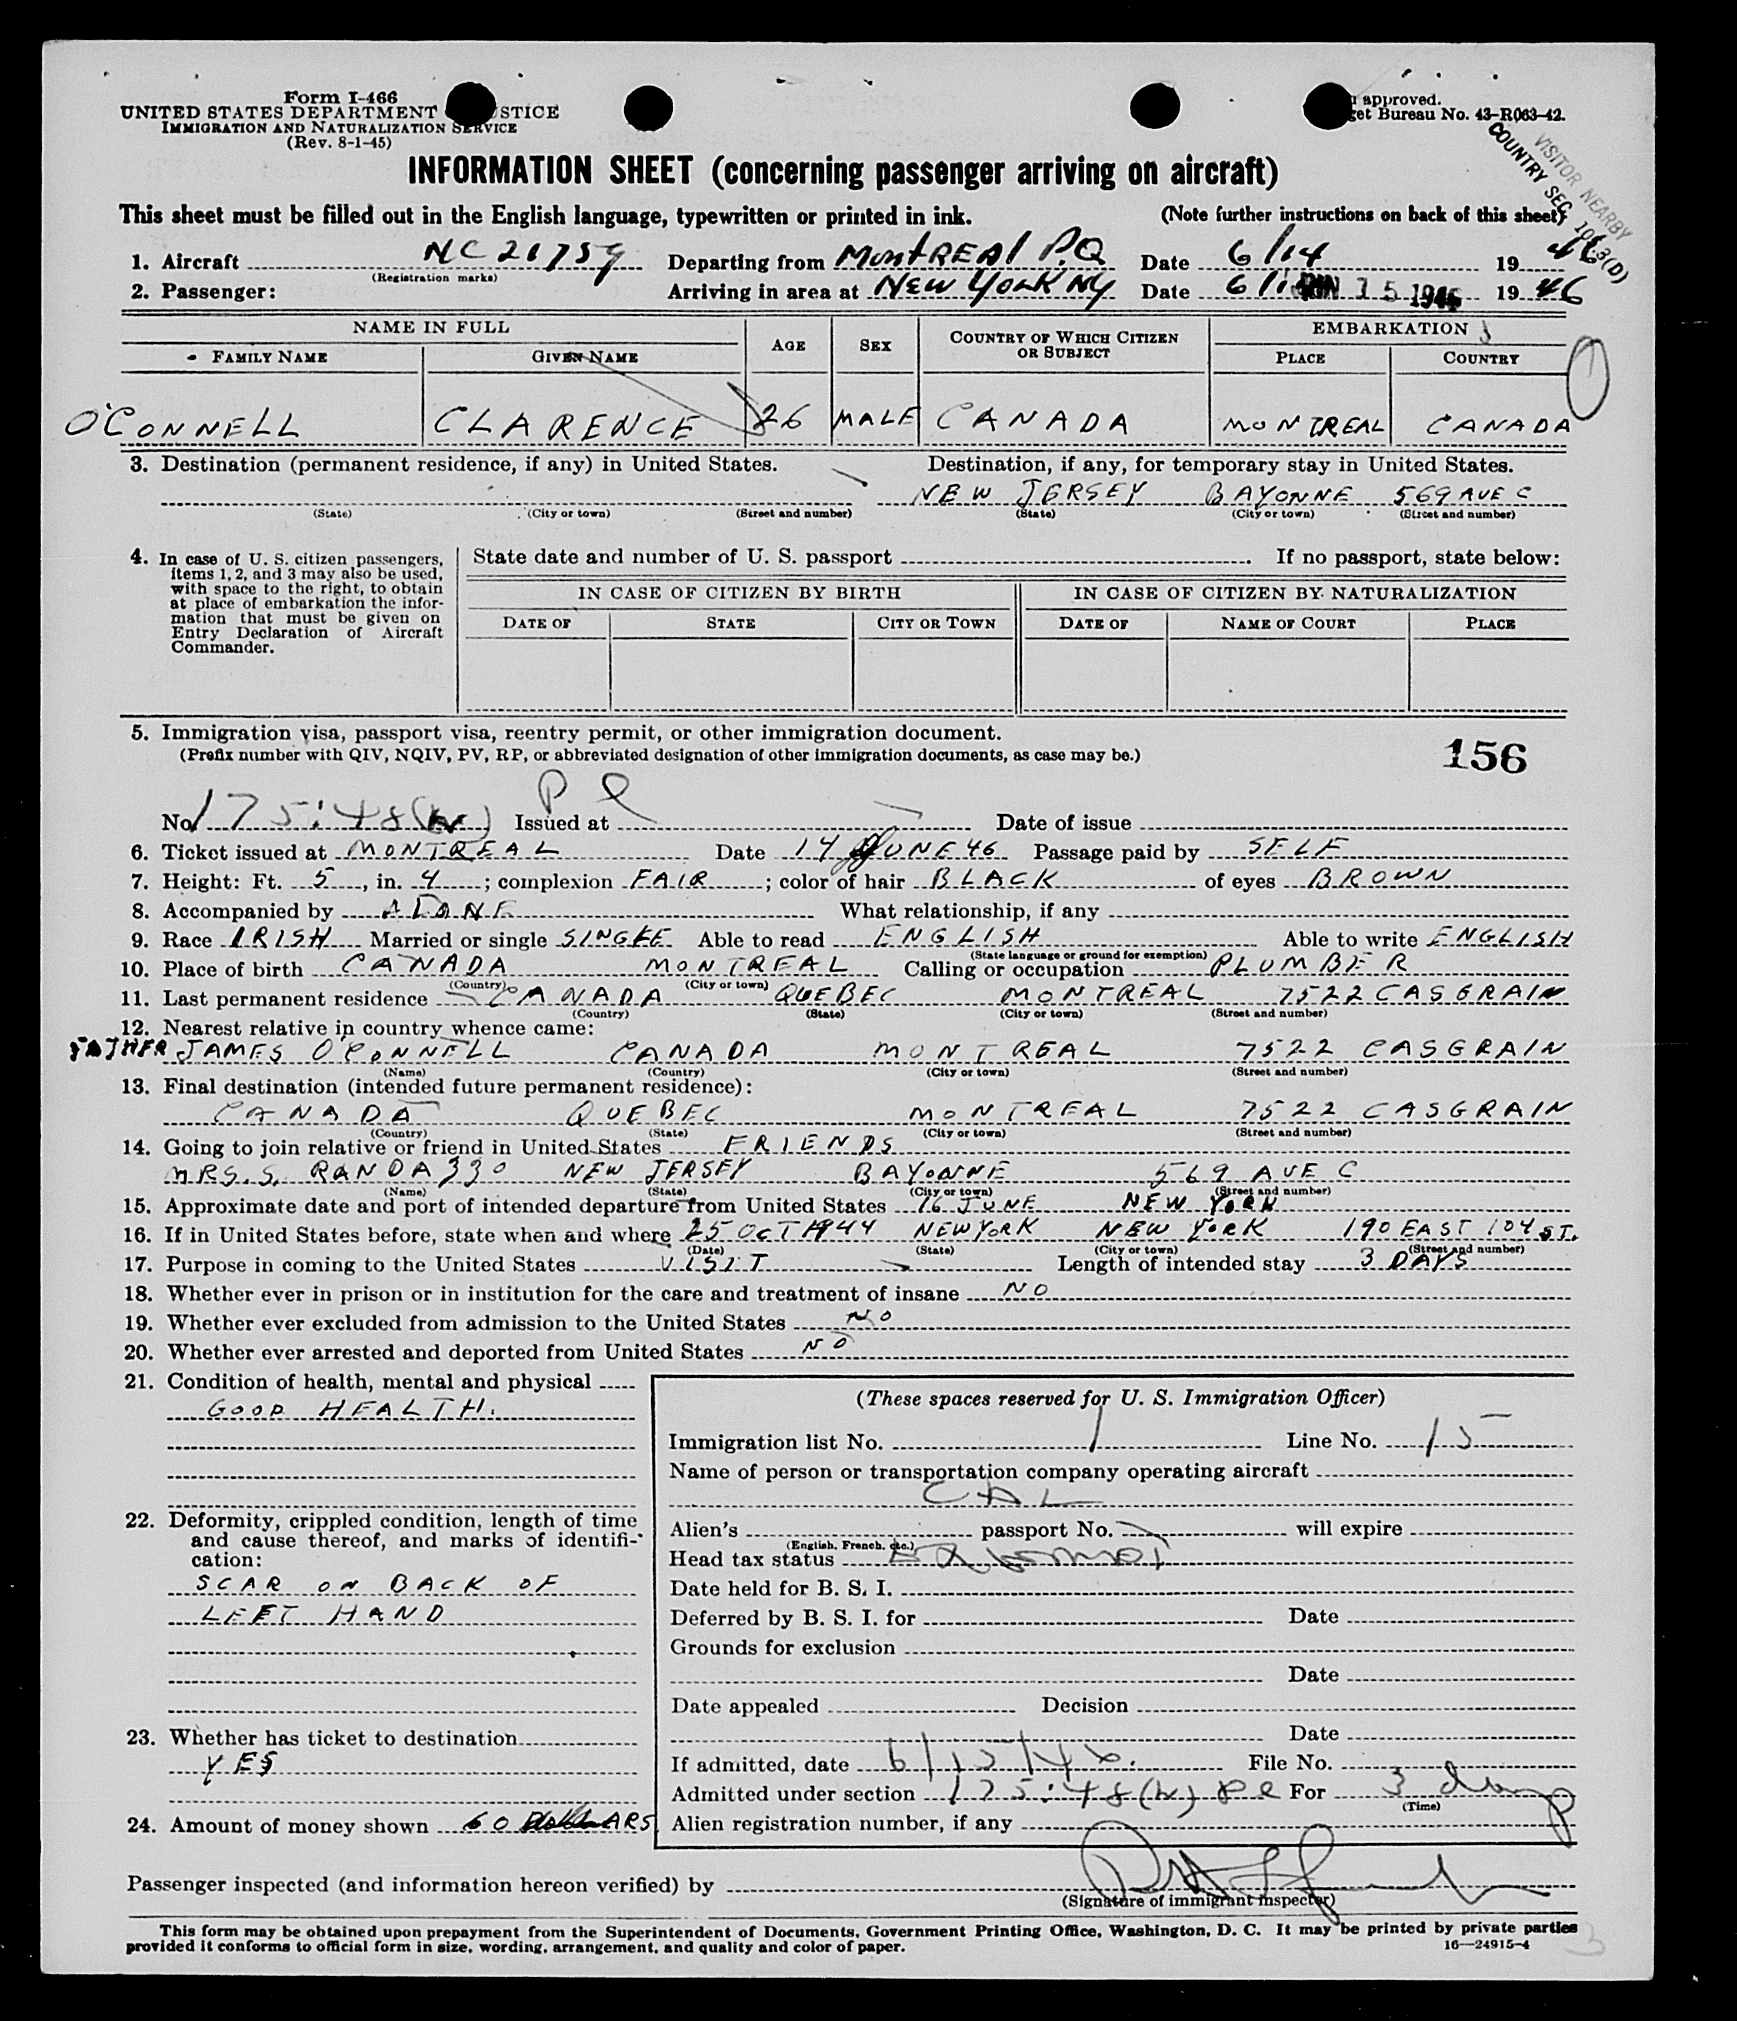 Form I-466
UNITED STATES DEPARTMENT STICE
IMMIGRATION AND NATURALIZATION SERVICE
(Rev. 8-1-45)
approved.
get Bureau No. 43-R063-42.
VISITOR NEARBY
COUNTRY SEC. 10 3(D)
INFORMATION SHEET (concerning passenger arriving on aircraft)
This sheet must be filled out in the English language, typewritten or printed in ink. (Note further instructions on back of this sheet)
1. Aircraft NC 21759 Departing from MONTREAL P.Q Date 6/14 19 46
(Registration marks)
2. Passenger: Arriving in area at NEW YORK NY Date 6/ JUN 15 1946 19 46
NAME IN FULL AGE SEX COUNTRY OF WHICH CITIZEN OR SUBJECT EMBARKATION
FAMILY NAME GIVEN NAME PLACE COUNTRY
O'CONNELL CLARENCE 26 MALE CANADA MONTREAL CANADA
3. Destination (permanent residence, if any) in United States. Destination, if any, for temporary stay in United States.
NEW JERSEY BAYONNE 569 AVE C
(State) (City or town) (Street and number) (State) (City or town) (Street and number)
4. In case of U. S. citizen passengers, items 1, 2, and 3 may also be used, with space to the right, to obtain at place of embarkation the information that must be given on Entry Declaration of Aircraft Commander.
State date and number of U. S. passport . If no passport, state below:
IN CASE OF CITIZEN BY BIRTH IN CASE OF CITIZEN BY NATURALIZATION
DATE OF STATE CITY OR TOWN DATE OF NAME OF COURT PLACE
5. Immigration visa, passport visa, reentry permit, or other immigration document.
(Prefix number with QIV, NQIV, PV, RP, or abbreviated designation of other immigration documents, as case may be.)
156
No. 175:48( ) Pl Issued at Date of issue
6. Ticket issued at MONTREAL Date 14 JUNE 46 Passage paid by SELF
7. Height: Ft. 5, in. 4; complexion FAIR; color of hair BLACK of eyes BROWN
8. Accompanied by ALONE What relationship, if any
9. Race IRISH Married or single SINGLE Able to read ENGLISH Able to write ENGLISH
(State language or ground for exemption)
10. Place of birth CANADA MONTREAL Calling or occupation PLUMBER
(Country) (City or town)
11. Last permanent residence CANADA QUEBEC MONTREAL 7522 CASGRAIN
(Country) (State) (City or town) (Street and number)
12. Nearest relative in country whence came:
FATHER JAMES O'CONNELL CANADA MONTREAL 7522 CASGRAIN
(Name) (Country) (City or town) (Street and number)
13. Final destination (intended future permanent residence):
CANADA QUEBEC MONTREAL 7522 CASGRAIN
(Country) (State) (City or town) (Street and number)
14. Going to join relative or friend in United States FRIENDS
MRS. S. RANDAZZO NEW JERSEY BAYONNE 569 AVE C
(Name) (State) (City or town) (Street and number)
15. Approximate date and port of intended departure from United States 16 JUNE NEW YORK
16. If in United States before, state when and where 25 OCT 1944 NEW YORK NEW YORK 190 EAST 104 ST.
(Date) (State) (City or town) (Street and number)
17. Purpose in coming to the United States VISIT Length of intended stay 3 DAYS
18. Whether ever in prison or in institution for the care and treatment of insane NO
19. Whether ever excluded from admission to the United States NO
20. Whether ever arrested and deported from United States NO
21. Condition of health, mental and physical
GOOD HEALTH.
22. Deformity, crippled condition, length of time and cause thereof, and marks of identification:
SCAR ON BACK OF
LEFT HAND
23. Whether has ticket to destination
YES
24. Amount of money shown 60 DollARS
(These spaces reserved for U. S. Immigration Officer)
Immigration list No. 1 Line No. 15
Name of person or transportation company operating aircraft
CAL
Alien's passport No. will expire
(English, French, etc.)
Head tax status Exempt
Date held for B. S. I.
Deferred by B. S. I. for Date
Grounds for exclusion
Date
Date appealed Decision
Date
If admitted, date 6/15/46. File No.
Admitted under section 175:48( ) Pl For 3 days
(Time)
Alien registration number, if any
Passenger inspected (and information hereon verified) by
(Signature of immigrant inspector)
This form may be obtained upon prepayment from the Superintendent of Documents, Government Printing Office, Washington, D. C. It may be printed by private parties
provided it conforms to official form in size, wording, arrangement, and quality and color of paper. 16—24915-4